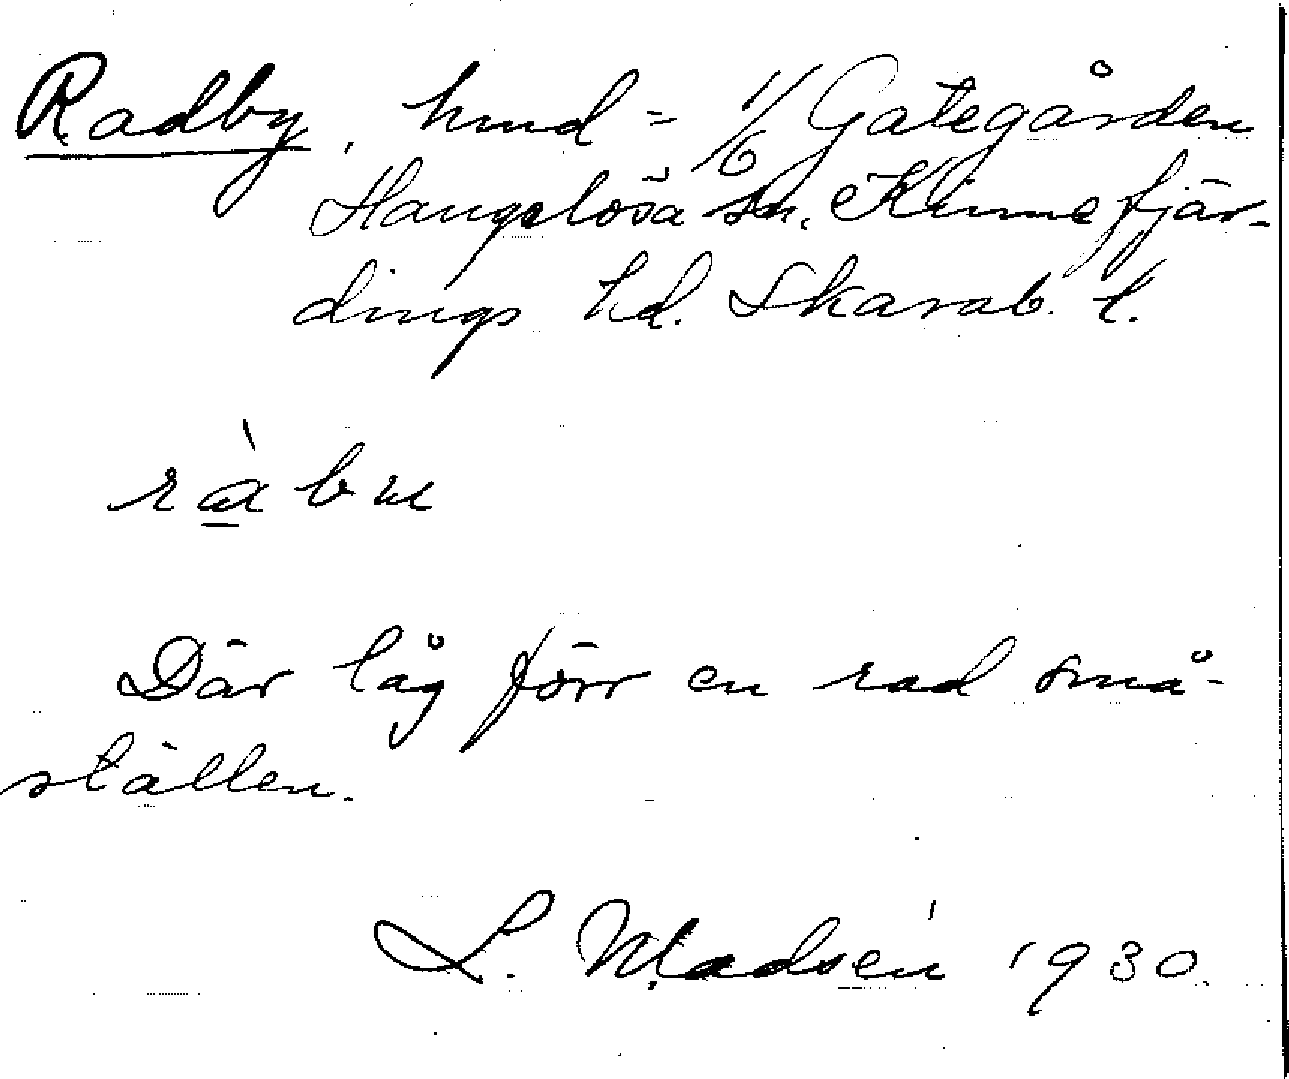 Radby, hmd = 1/6 Gategården
Hangelösa sn, Kinnefjär-
dings hd. Skarab. l.
ràbu
Där låg förr en rad små-
ställen.
L. Madsén 1930.